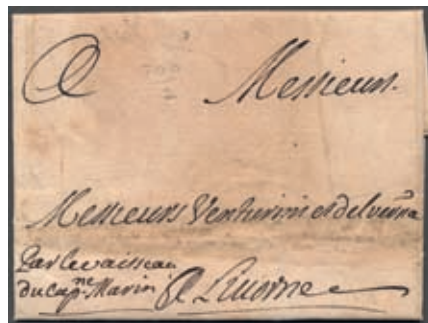 A Messieurs.
Messieurs Venturini et del
Par le vaisseau
du Cap.ne Marin A Livorne